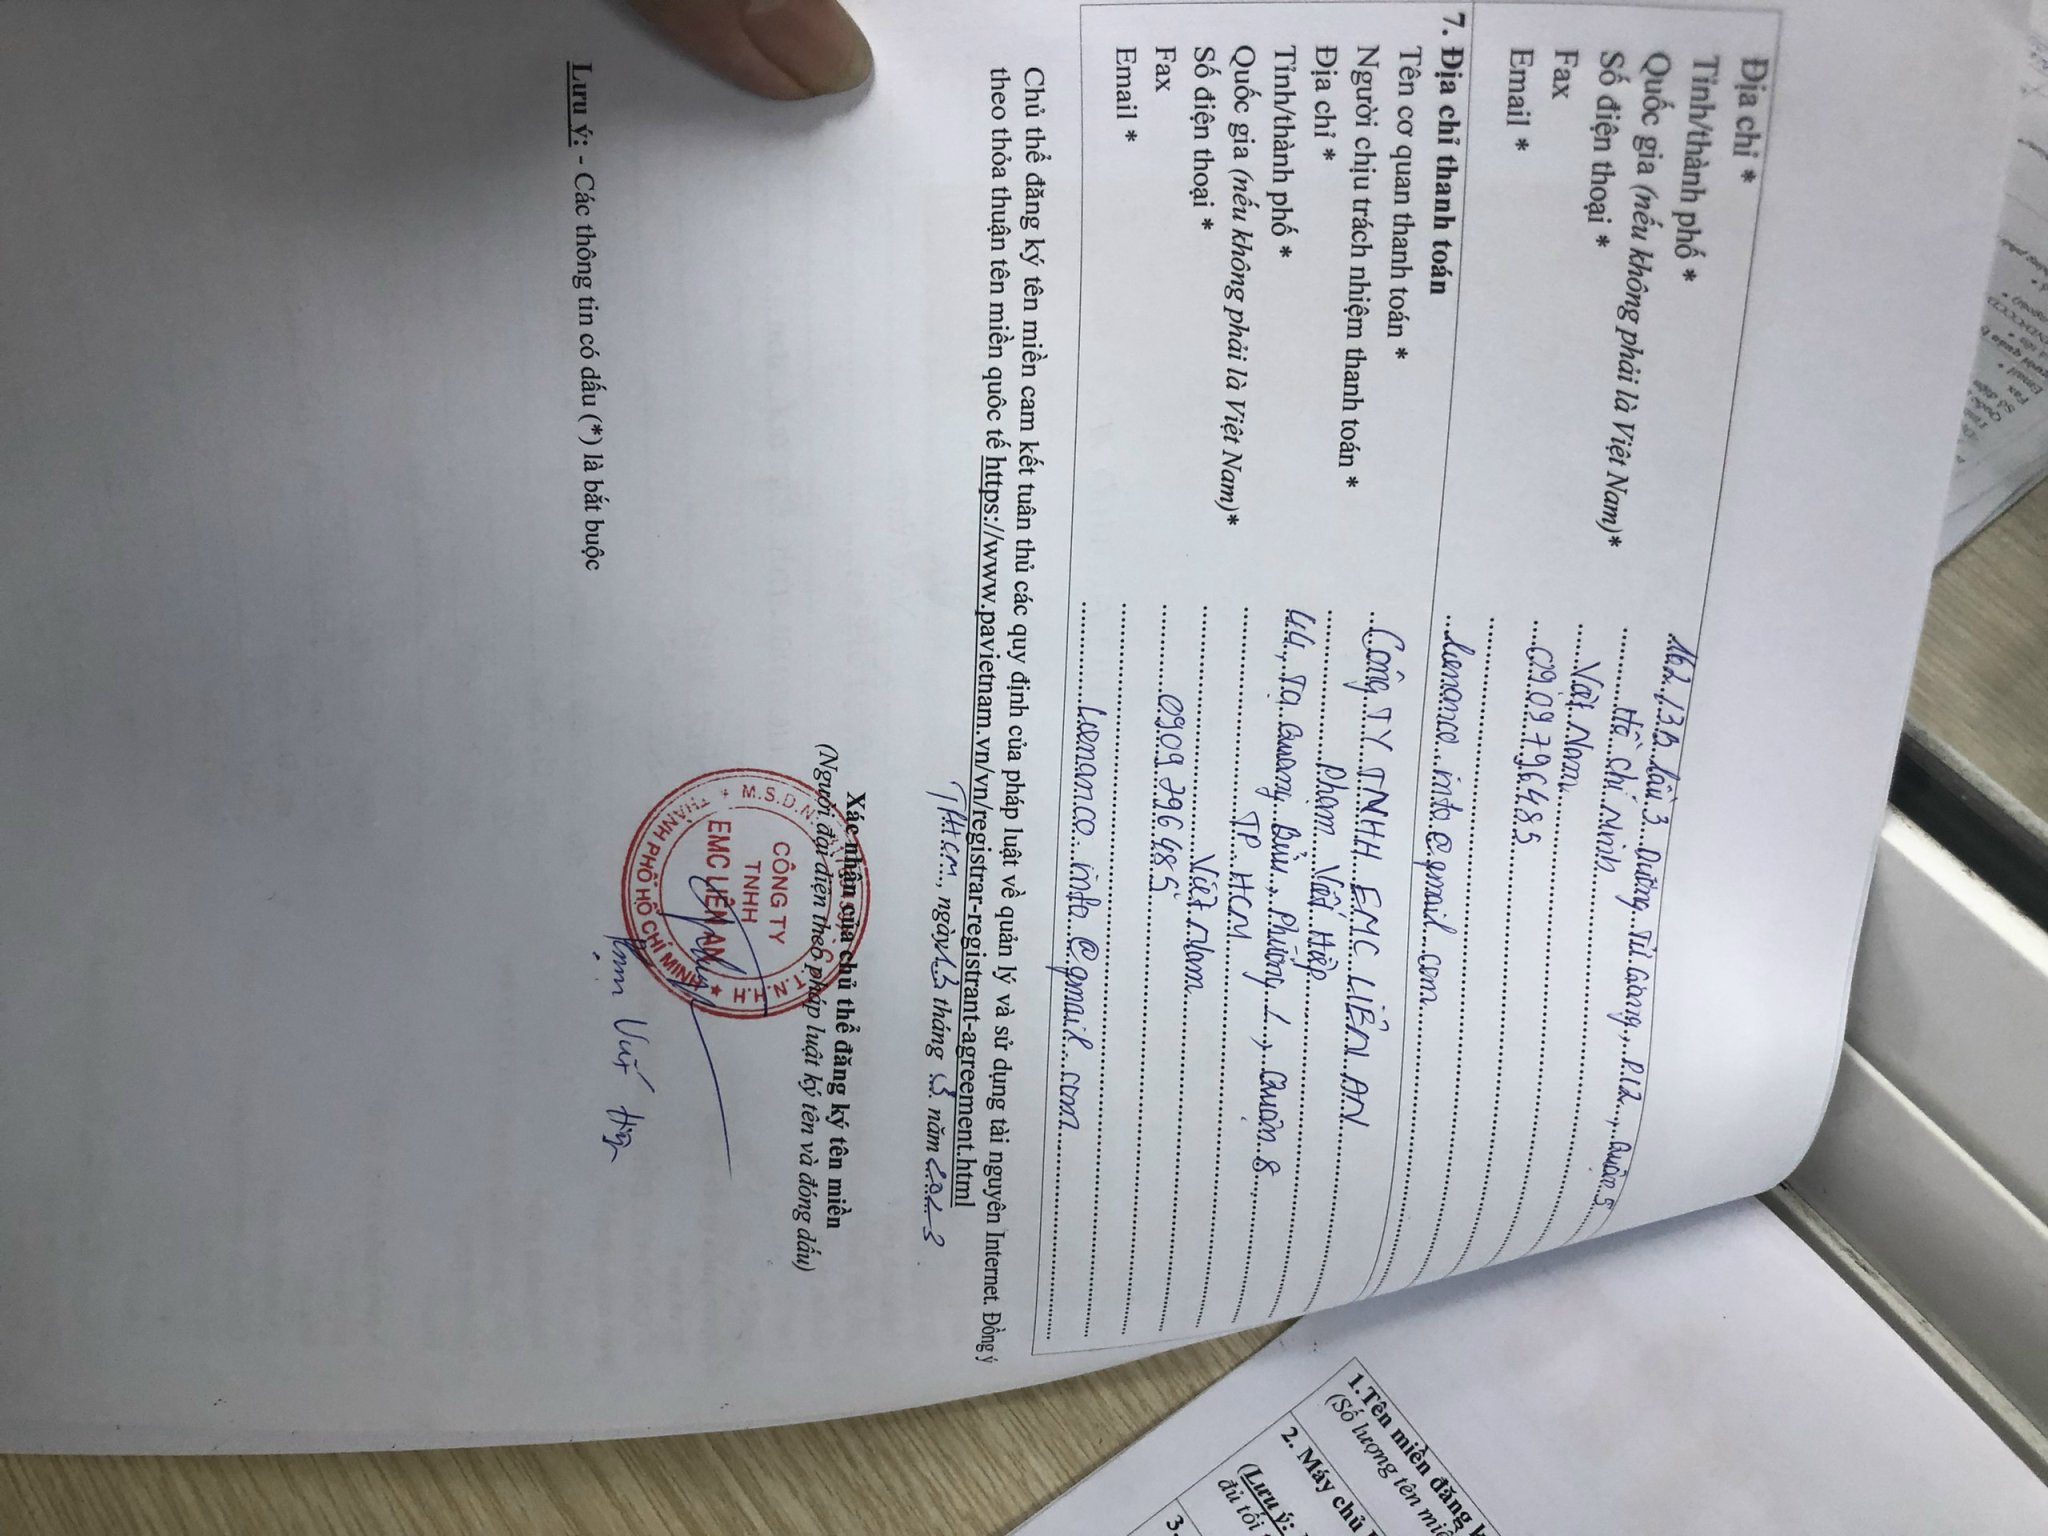 Địa chỉ * 162/3B lầu 3 Đường Tử Giang, P.12, Quận 5
Tỉnh/thành phố * Hồ Chí Minh
Quốc gia (nếu không phải là Việt Nam)* Việt Nam
Số điện thoại * 0909796485
Fax
Email * lienanco.info@gmail.com
7. Địa chỉ thanh toán
Tên cơ quan thanh toán * Công TY TNHH EMC LIÊN AN
Người chịu trách nhiệm thanh toán * Phạm Viết Hiệp
Địa chỉ * 44, Tạ Quang Bửu, Phường 1, Quận 8
Tỉnh/thành phố * TP HCM
Quốc gia (nếu không phải là Việt Nam)* Việt Nam
Số điện thoại * 0909 796 485
Fax
Email * lienanco.info@gmail.com
Chủ thể đăng ký tên miền cam kết tuân thủ các quy định của pháp luật về quản lý và sử dụng tài nguyên Internet. Đồng ý
theo thỏa thuận tên miền quốc tế https://www.pavietnam.vn/vn/registrar-registrant-agreement.html
TPHCM, ngày 13 tháng năm 2023
Xác nhận của chủ thể đăng ký tên miền
(Người đại diện theo pháp luật ký tên và đóng dấu)
CÔNG TY
TNHH
EMC LIÊN AN
THÀNH PHỐ HỒ CHÍ MINH
Phạm Viết Hiệp
Lưu ý: - Các thông tin có dấu (*) là bắt buộc
1.Tên miền đăng
(Số lượng tên miề
2. Máy chủ
(Lưu ý:
đủ tối
3.